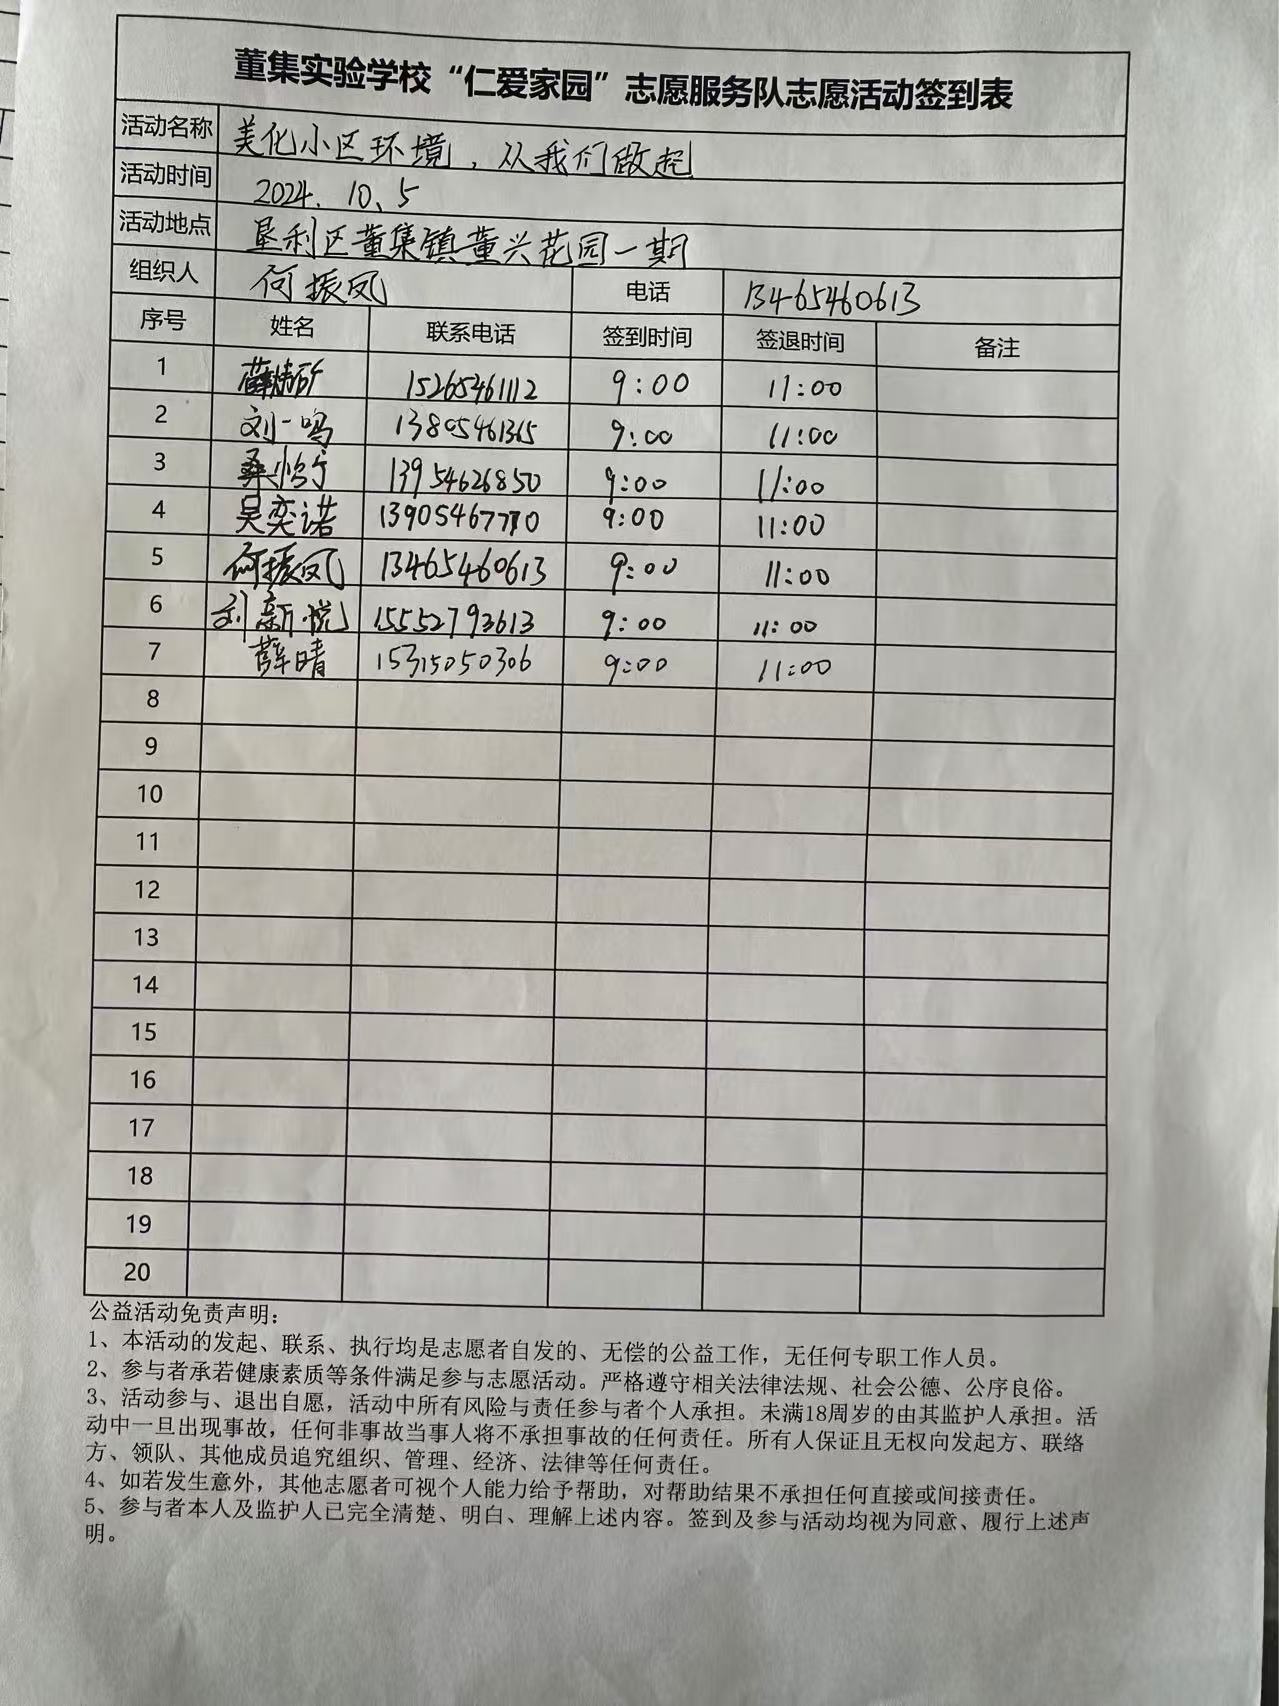 董集实验学校“仁爱家园”志愿服务队志愿活动签到表
活动名称 美化小区环境，从我们做起
活动时间 2024.10、5
活动地点 垦利区董集镇董兴花园一期
组织人 何振凤 电话 13465460613
序号 姓名 联系电话 签到时间 签退时间 备注
1 15265461112 9:00 11:00
2 刘一鸣 13805461365 9:00 11:00
3 13954626850 9:00 11:00
4 吴奕诺 9:00 11:00
5 何振凤 13465460613 9:00 11:00
6 刘新悦 15552793613 9:00 11:00
7 薛晴 15315050306 9:00 11:00
8
9
10
11
12
13
14
15
16
17
18
19
20
公益活动免责声明：
1、本活动的发起、联系、执行均是志愿者自发的、无偿的公益工作，无任何专职工作人员。
2、参与者承若健康素质等条件满足参与志愿活动。严格遵守相关法律法规、社会公德、公序良俗。
3、活动参与、退出自愿，活动中所有风险与责任参与者个人承担。未满18周岁的由其监护人承担。活
动中一旦出现事故，任何非事故当事人将不承担事故的任何责任。所有人保证且无权向发起方、联络
方、领队、其他成员追究组织、管理、经济、法律等任何责任。
4、如若发生意外，其他志愿者可视个人能力给予帮助，对帮助结果不承担任何直接或间接责任。
5、参与者本人及监护人已完全清楚、明白、理解上述内容。签到及参与活动均视为同意、履行上述声
明。